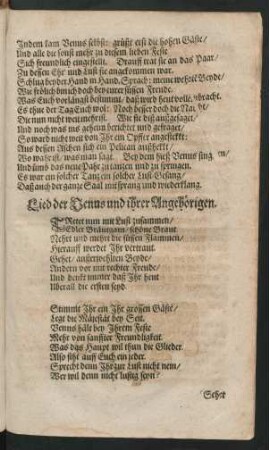 Indem kam Venus selbst: grüßt erst die hohen Gäste/
Und alle die sonst mehr zu diesem lieben Feste
Sich freundlich eingestellt. Drauff trat sie an das Paar/
Zu dessen Ehr und Lust sie angekommen war.
Schlug beyder Hand in Hand. Sprach: meine wehrte Beyde/
Wie frölich bin ich doch bey eurer süssen Freude.
Was Euch vorlängst bestimmt/ daß wird heut voll
Es thue der Tag Euch wol: Noch besser doch die
Die nun nicht weit mehr ist. Wie sie diß außgesaget/
Und noch was uns gehein berichtet und gefraget/
So ward nicht weit von Ihr ein Opfer angesteckt:
Aus dessen Aschen sich ein Pelican außstreckt/
Wo wahr ist/ was man sagt. Bey dem hieß Venus
Und ümb das neue Paar zu tanzen und zu springen.
Es war ein solcher Tanz/ ein solcher Lust-Gesang/
Daß auch der ganze Saal mit sprang und wiederklang.
Lied der Venus und ihrer Angehörigen.
TRetet nun mit Lust zusammen/
Edler Bräutgam/ schöne Braut
Nehret und mehret die süssen Flammen/
Hierauff werdet Ihr vertraut.
Gehet/ außerwehlten Beyde/
Andern vor mit rechter Freude/
Und denkt immer daß Ihr heut
Uberall die ersten seyd
Stimmt Ihr ein Ihr grossen Gäste/
Legt die Majestät bey Seit.
Venus hält bey Ihrem Feste
Mehr von sanffter Freundligkeit.
Was das Haupt wil thun die Glieder.
Also siht auff Euch ein jeder.
Sprecht denn Ihr zur Lust nicht nein/
Wer wil denn nicht lustig seyn?
Sehet